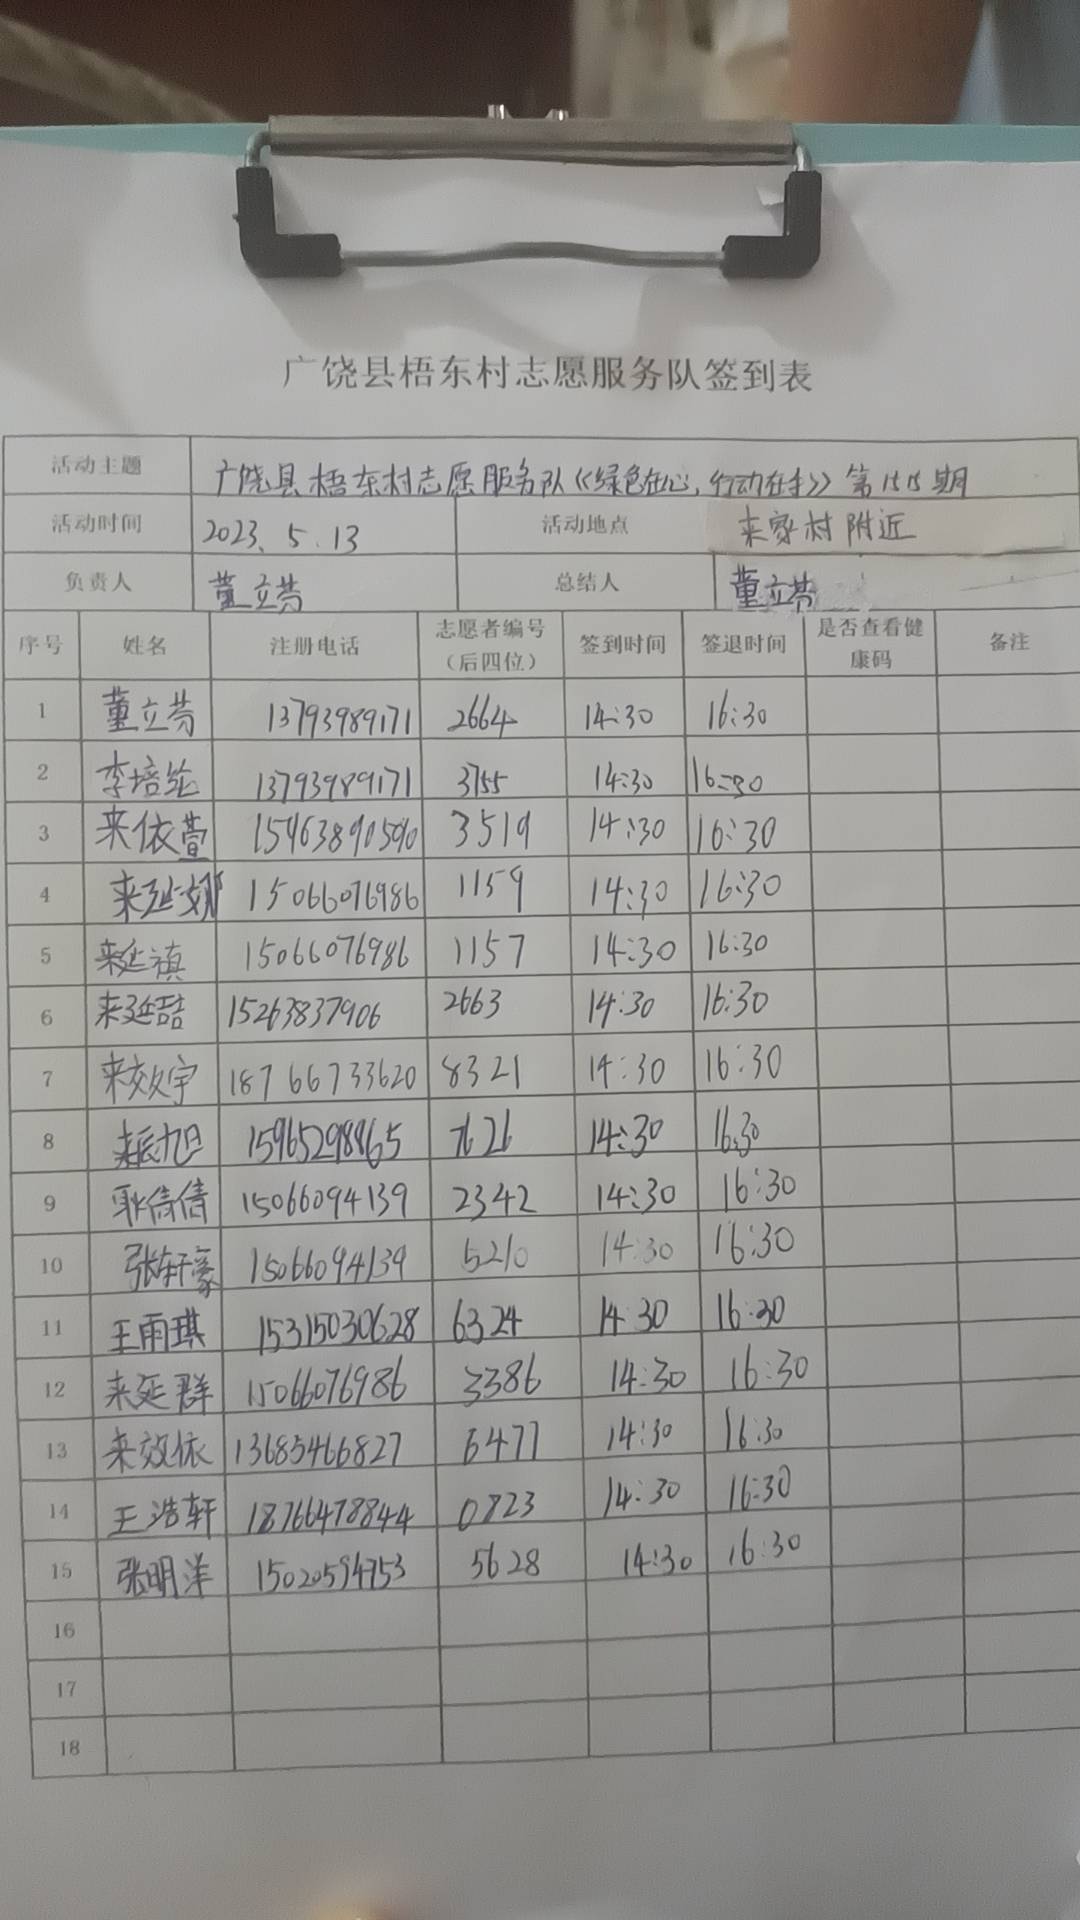 广饶县梧东村志愿服务队签到表
活动主题 广饶县梧东村志愿服务队《绿色在心,行动在手》第155期
活动时间 2023.5.13 活动地点 来家村附近
负责人 董立芬 总结人 董立芬
序号 姓名 注册电话 志愿者编号（后四位） 签到时间 签退时间 是否查看健康码 备注
1 董立芬 13793989171 2664 14:30 16:30
2 李培 13793989171 3755 14:30 16:30
3 来依萱 15963890590 3519 14:30 16:30
4 来延娜 15066076986 1159 14:30 16:30
5 来延禛 15066076986 1157 14:30 16:30
6 来延喆 15263837906 2663 14:30 16:30
7 来效宇 18766733620 8321 14:30 16:30
8 来辰旭 15965298865 7626 14:30 16:30
9 耿倩倩 15066094139 2342 14:30 16:30
10 张轩豪 15066094139 5210 14:30 16:30
11 王雨琪 15315030628 6324 14:30 16:30
12 来延群 15066076986 3386 14:30 16:30
13 来效依 13685466827 6477 14:30 16:30
14 王浩轩 18766478844 0823 14:30 16:30
15 张明洋 15020594753 5628 14:30 16:30
16
17
18